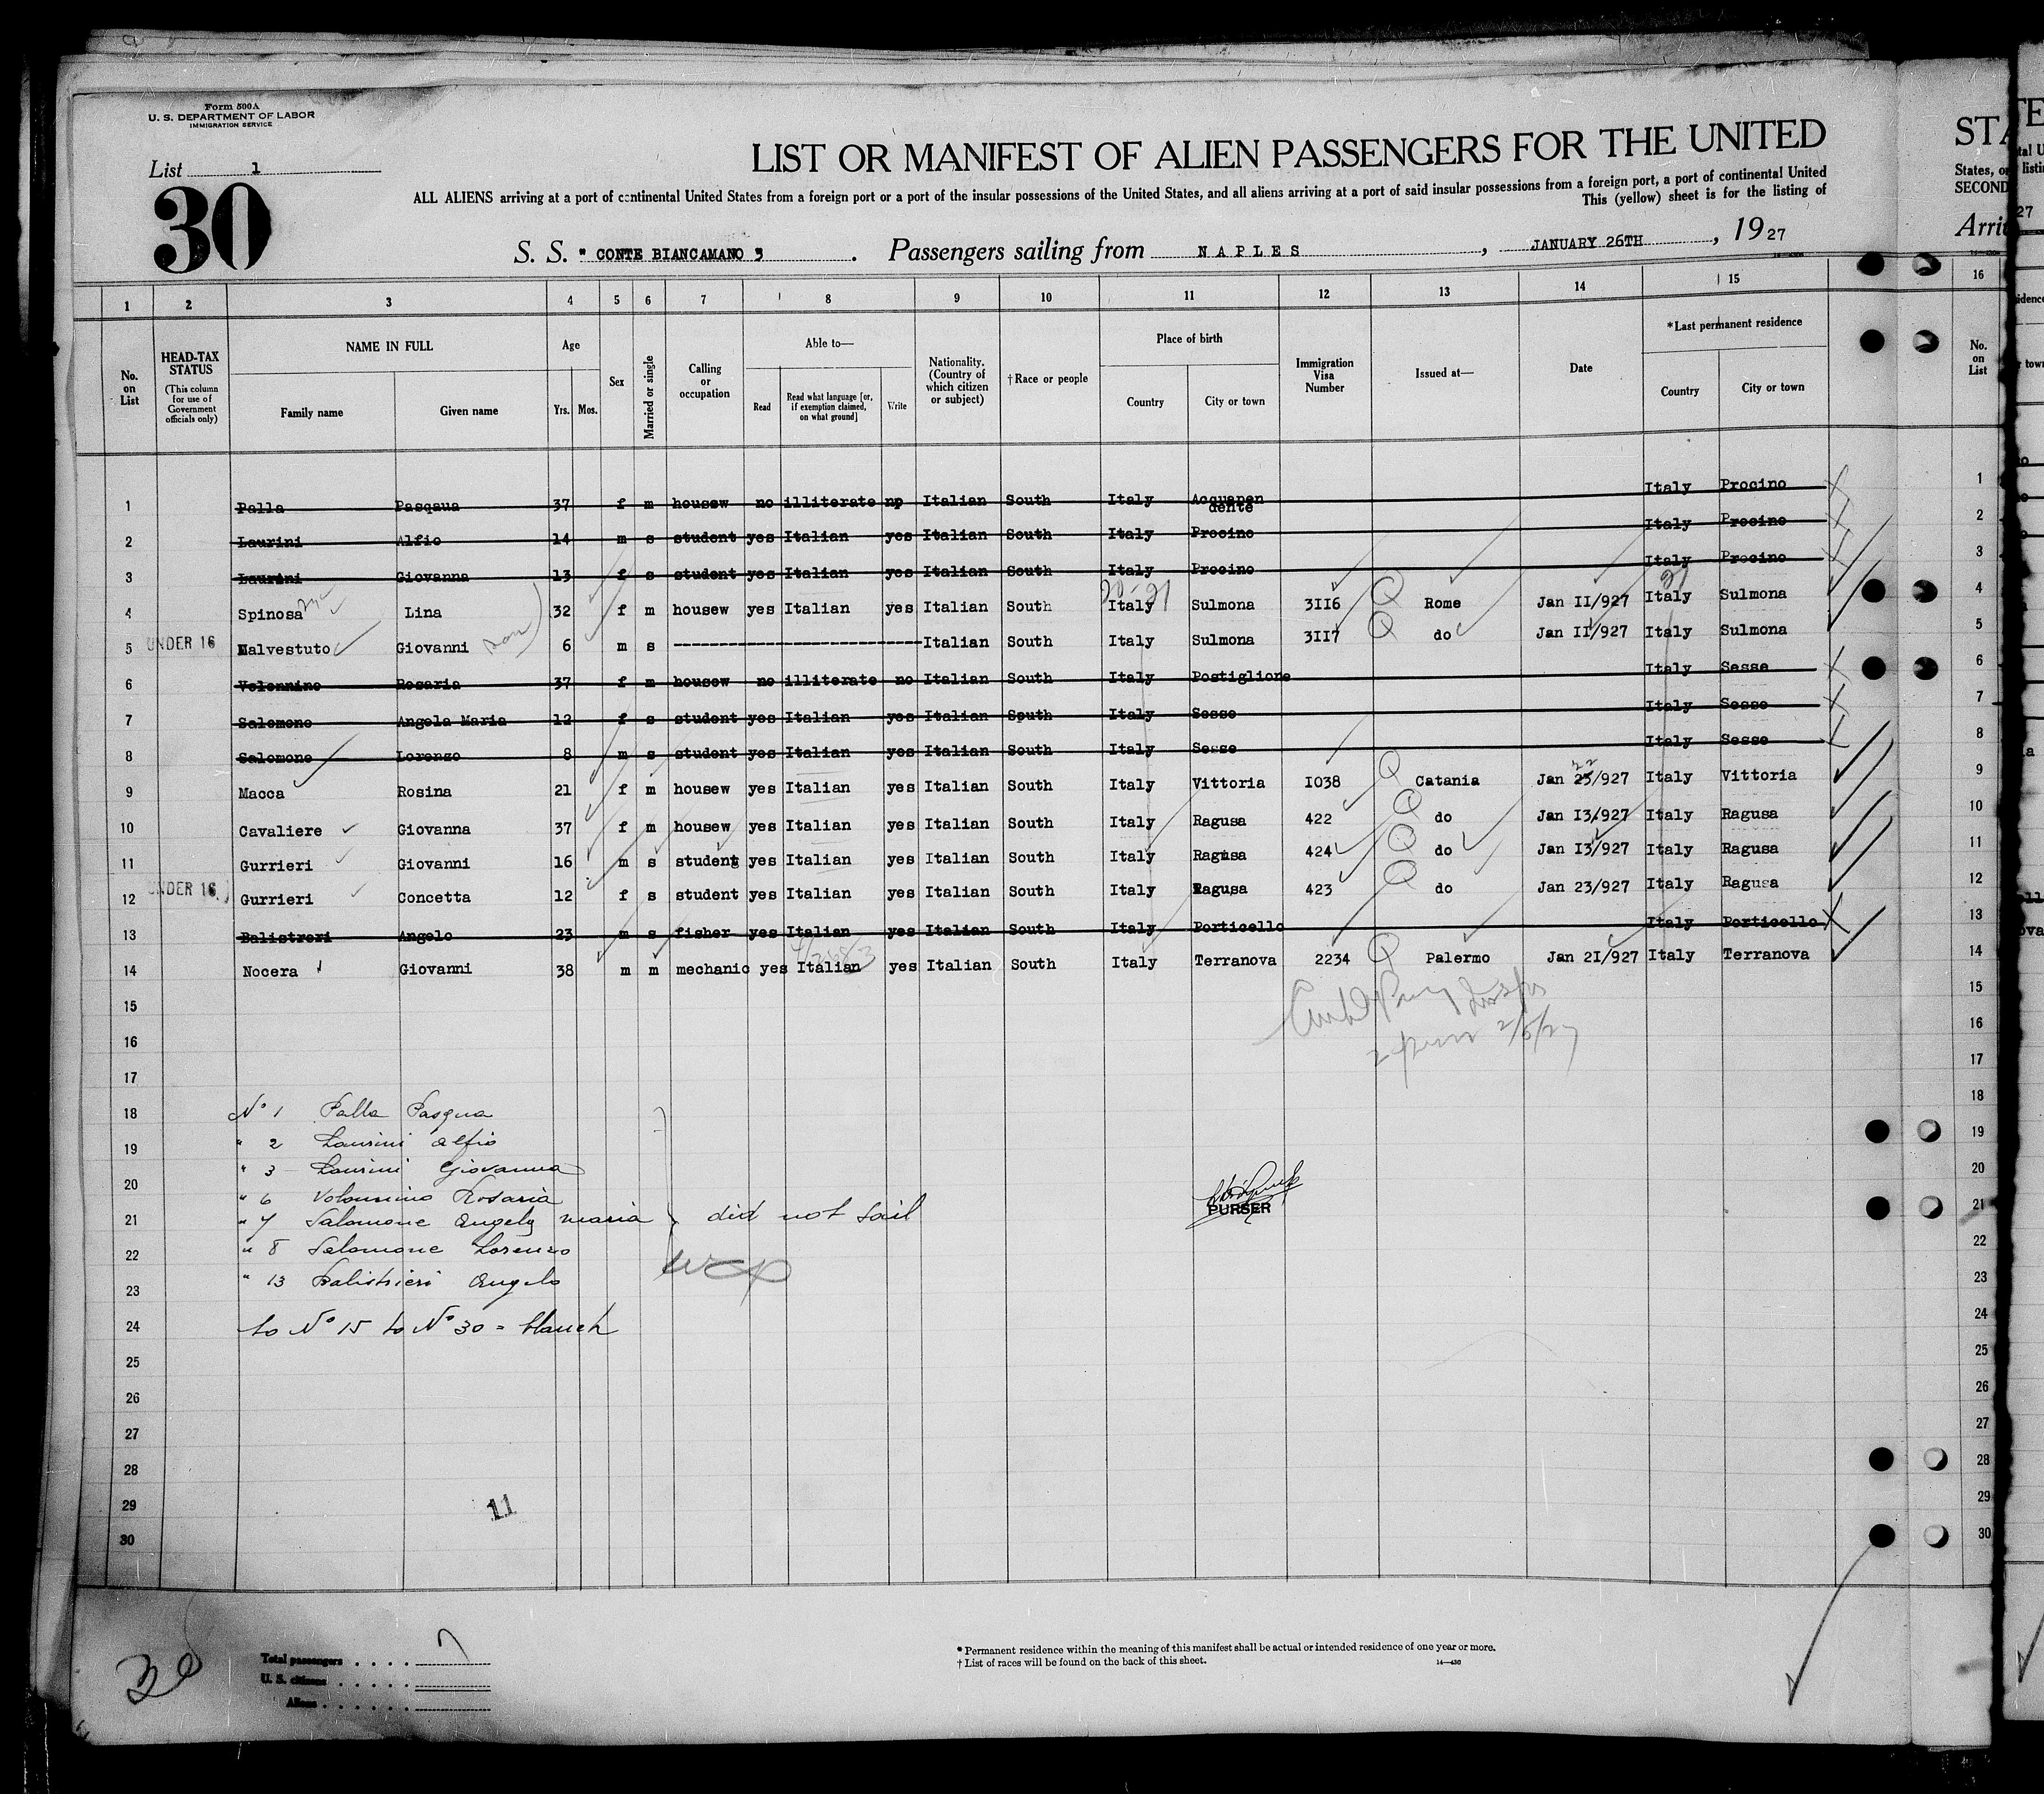 Form 500A
U. S. DEPARTMENT OF LABOR
IMMIGRATION SERVICE
List 1
30
LIST OR MANIFEST OF ALIEN PASSENGERS FOR THE UNITED
ALL ALIENS arriving at a port of continental United States from a foreign port or a port of the insular possessions of the United States, and all aliens arriving at a port of said insular possessions from a foreign port, a port of continental United
This (yellow) sheet is for the listing of
S. S. " CONTE BIANCAMANO " . Passengers sailing from NAPLES , JANUARY 26TH , 1927
1 2 3 4 5 6 7 8 9 10 11 12 13 14 15
No. on List
HEAD-TAX STATUS (This column for use of Government officials only)
NAME IN FULL
Family name
Given name
Age
Yrs. Mos.
Sex
Married or single
Calling or occupation
Able to—
Read
Read what language [or, if exemption claimed, on what ground]
Write
Nationality. (Country of which citizen or subject)
† Race or people
Place of birth
Country
City or town
Immigration Visa Number
Issued at—
Date
* Last permanent residence
Country
City or town
1 Palla Pasqaua 37 f m housew no illiterate no Italian South Italy Acquapendente Italy Procino
2 Laurini Alfio 14 m s student yes Italian yes Italian South Italy Procino Italy Procino
3 Laurini Giovanna 13 f s student yes Italian yes Italian South Italy Procino Italy Procino
4 Spinosa Lina 32 f m housew yes Italian yes Italian South Italy Sulmona 3II6 Rome Jan II/927 Italy Sulmona
UNDER 16
5 Malvestuto Giovanni son 6 m s Italian South Italy Sulmona 3II7 do Jan II/927 Italy Sulmona
6 Volonnino Rosaria 37 f m housew no illiterate no Italian South Italy Postiglione Italy Sesse
7 Salomone Angela Maria 12 f s student yes Italian yes Italian South Italy Sesse Italy Sesse
8 Salomone Lorenzo 8 m s student yes Italian yes Italian South Italy Sesse Italy Sesse
9 Macca Rosina 21 f m housew yes Italian yes Italian South Italy Vittoria I038 Catania Jan 23/927 22 Italy Vittoria
10 Cavaliere Giovanna 37 f m housew yes Italian yes Italian South Italy Ragusa 422 do Jan I3/927 Italy Ragusa
11 Gurrieri Giovanni 16 m s student yes Italian yes Italian South Italy Ragusa 424 do Jan I3/927 Italy Ragusa
UNDER 16
12 Gurrieri Concetta 12 f s student yes Italian yes Italian South Italy Ragusa 423 do Jan 23/927 Italy Ragusa
13 Balistreri Angelo 23 m s fisher yes Italian yes Italian South Italy Porticello Italy Porticello
14 Nocera Giovanni 38 m m mechanic yes Italian yes Italian South Italy Terranova 2234 Palermo Jan 2I/927 Italy Terranova
15
16
2/5/27
17
18 No 1 Palla Pasqua
19 " 2 Laurini Alfio
" 3 Laurini Giovanna
20 " 6 Volonnino Rosaria
21 " 7 Salomone Angela Maria did not sail
PURSER
22 " 8 Salomone Lorenzo
23 " 13 Balistrieri Angelo
24 to No 15 to No 30 = blanch
25
26
27
28
29 11
30
Total passengers . . . . 7
U. S. citizens . . . . .
Aliens . . . . . .
30
* Permanent residence within the meaning of this manifest shall be actual or intended residence of one year or more.
† List of races will be found on the back of this sheet.
14—430
STA
States, o
SECOND
Arri
16
No. on List
1
2
3
4
5
6
7
8
9
10
11
12
13
14
15
16
17
18
19
20
21
22
23
24
25
26
27
28
29
30